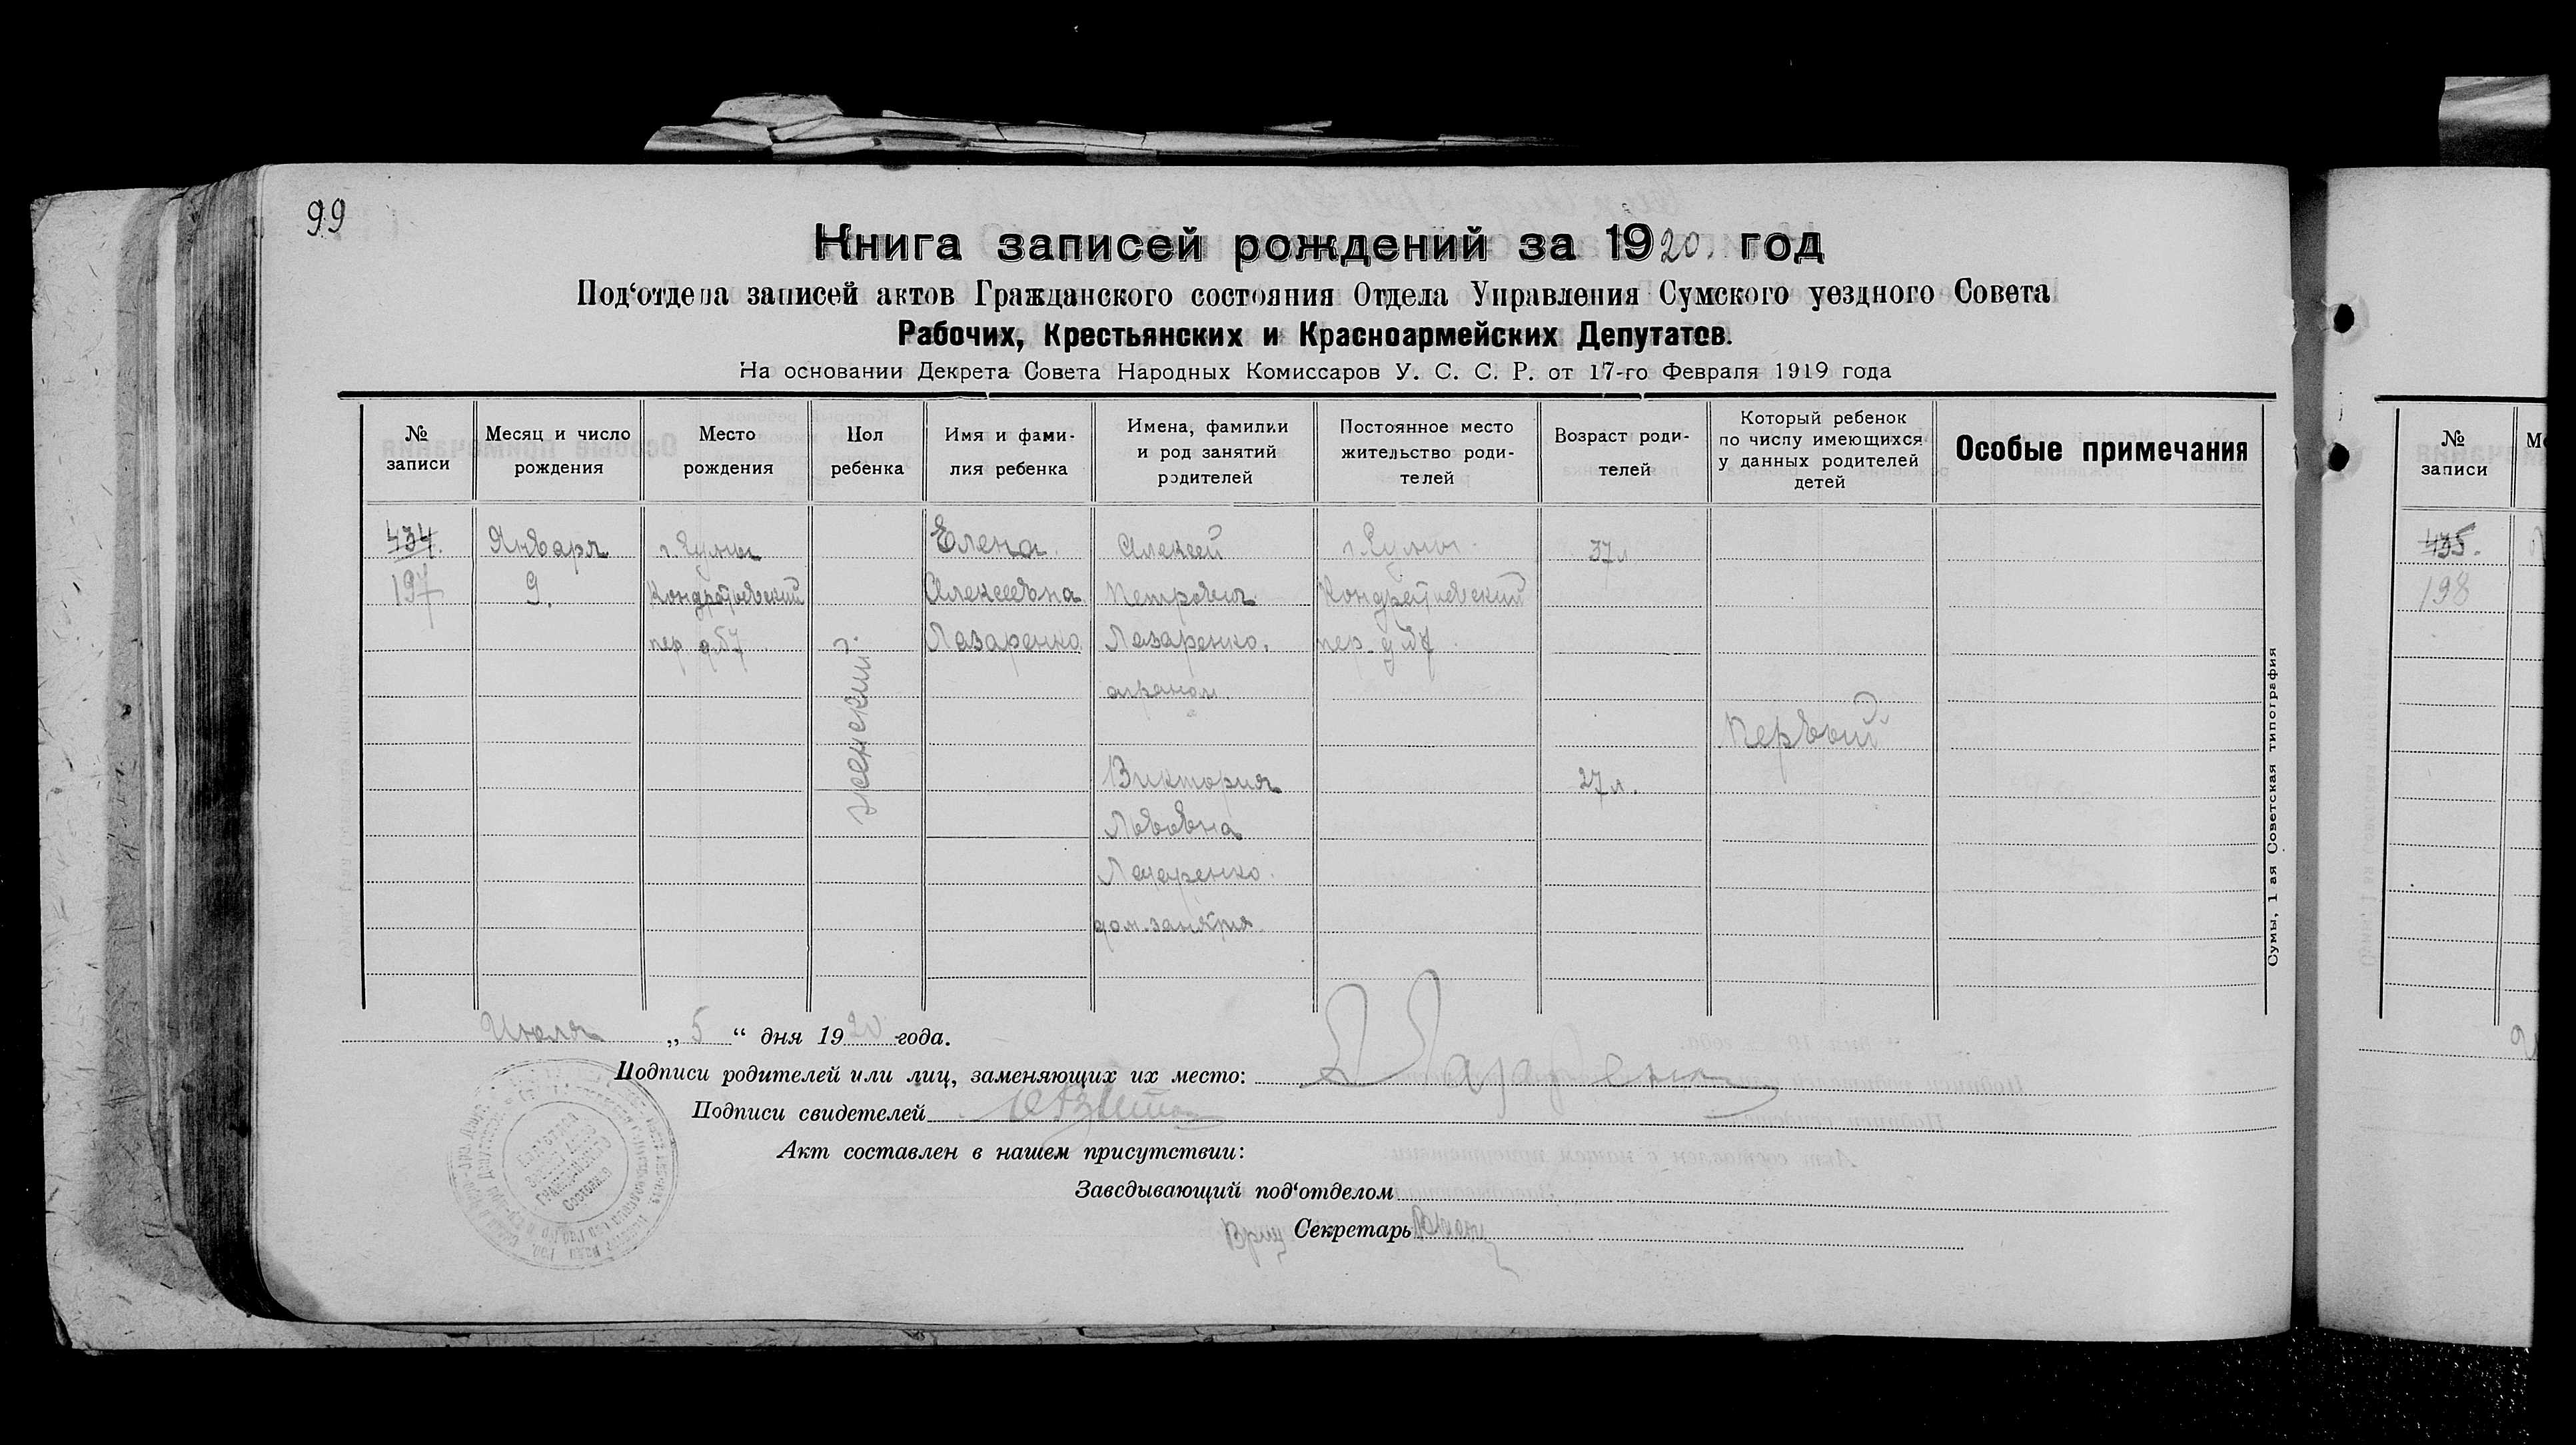 99
Книга записей рождений за 1920. год
Под‘отдела записей актов Гражданского состояния Отдела Управления Сумского уездного Совета
Рабочих, Крестьянских и Красноармейских Депутатов.
На основании Декрета Совета Народных Комиссаров У. С. С. Р. от 17-го Февраля 1919 года
№ записи
Месяц и число рождения
Место рождения
Пол ребенка
Имя и фами-
лия ребенка
Имена, фамилии
и род занятий
родителей
Постоянное место
жительство роди-
телей
Возраст роди-
телей
Который ребенок
по числу имеющихся
у данных родителей
детей
Особые примечания
434.
197
Января
9.
г. Сумы
Кондратьевский
пер. д. №7
женский.
Елена
Алексеевна
Лазаренко
Алексей
Петрович
Лазаренко.
агроном.
Виктория
Львовна
Лазаренко.
дом. занятия
г. Сумы.
Кондратьевский
пер. д №7
37 л
27 л.
Первый
Июля „ 5 “ дня 1920 года.
Подписи родителей или лиц, заменяющих их место: Лазаренко
Подписи свидетелей
Акт составлен в нашем присутствии:
Заведывающий под‘отделом
Врид Секретарь
Сумы, 1 ая Советская типография
№
записи
435.
198